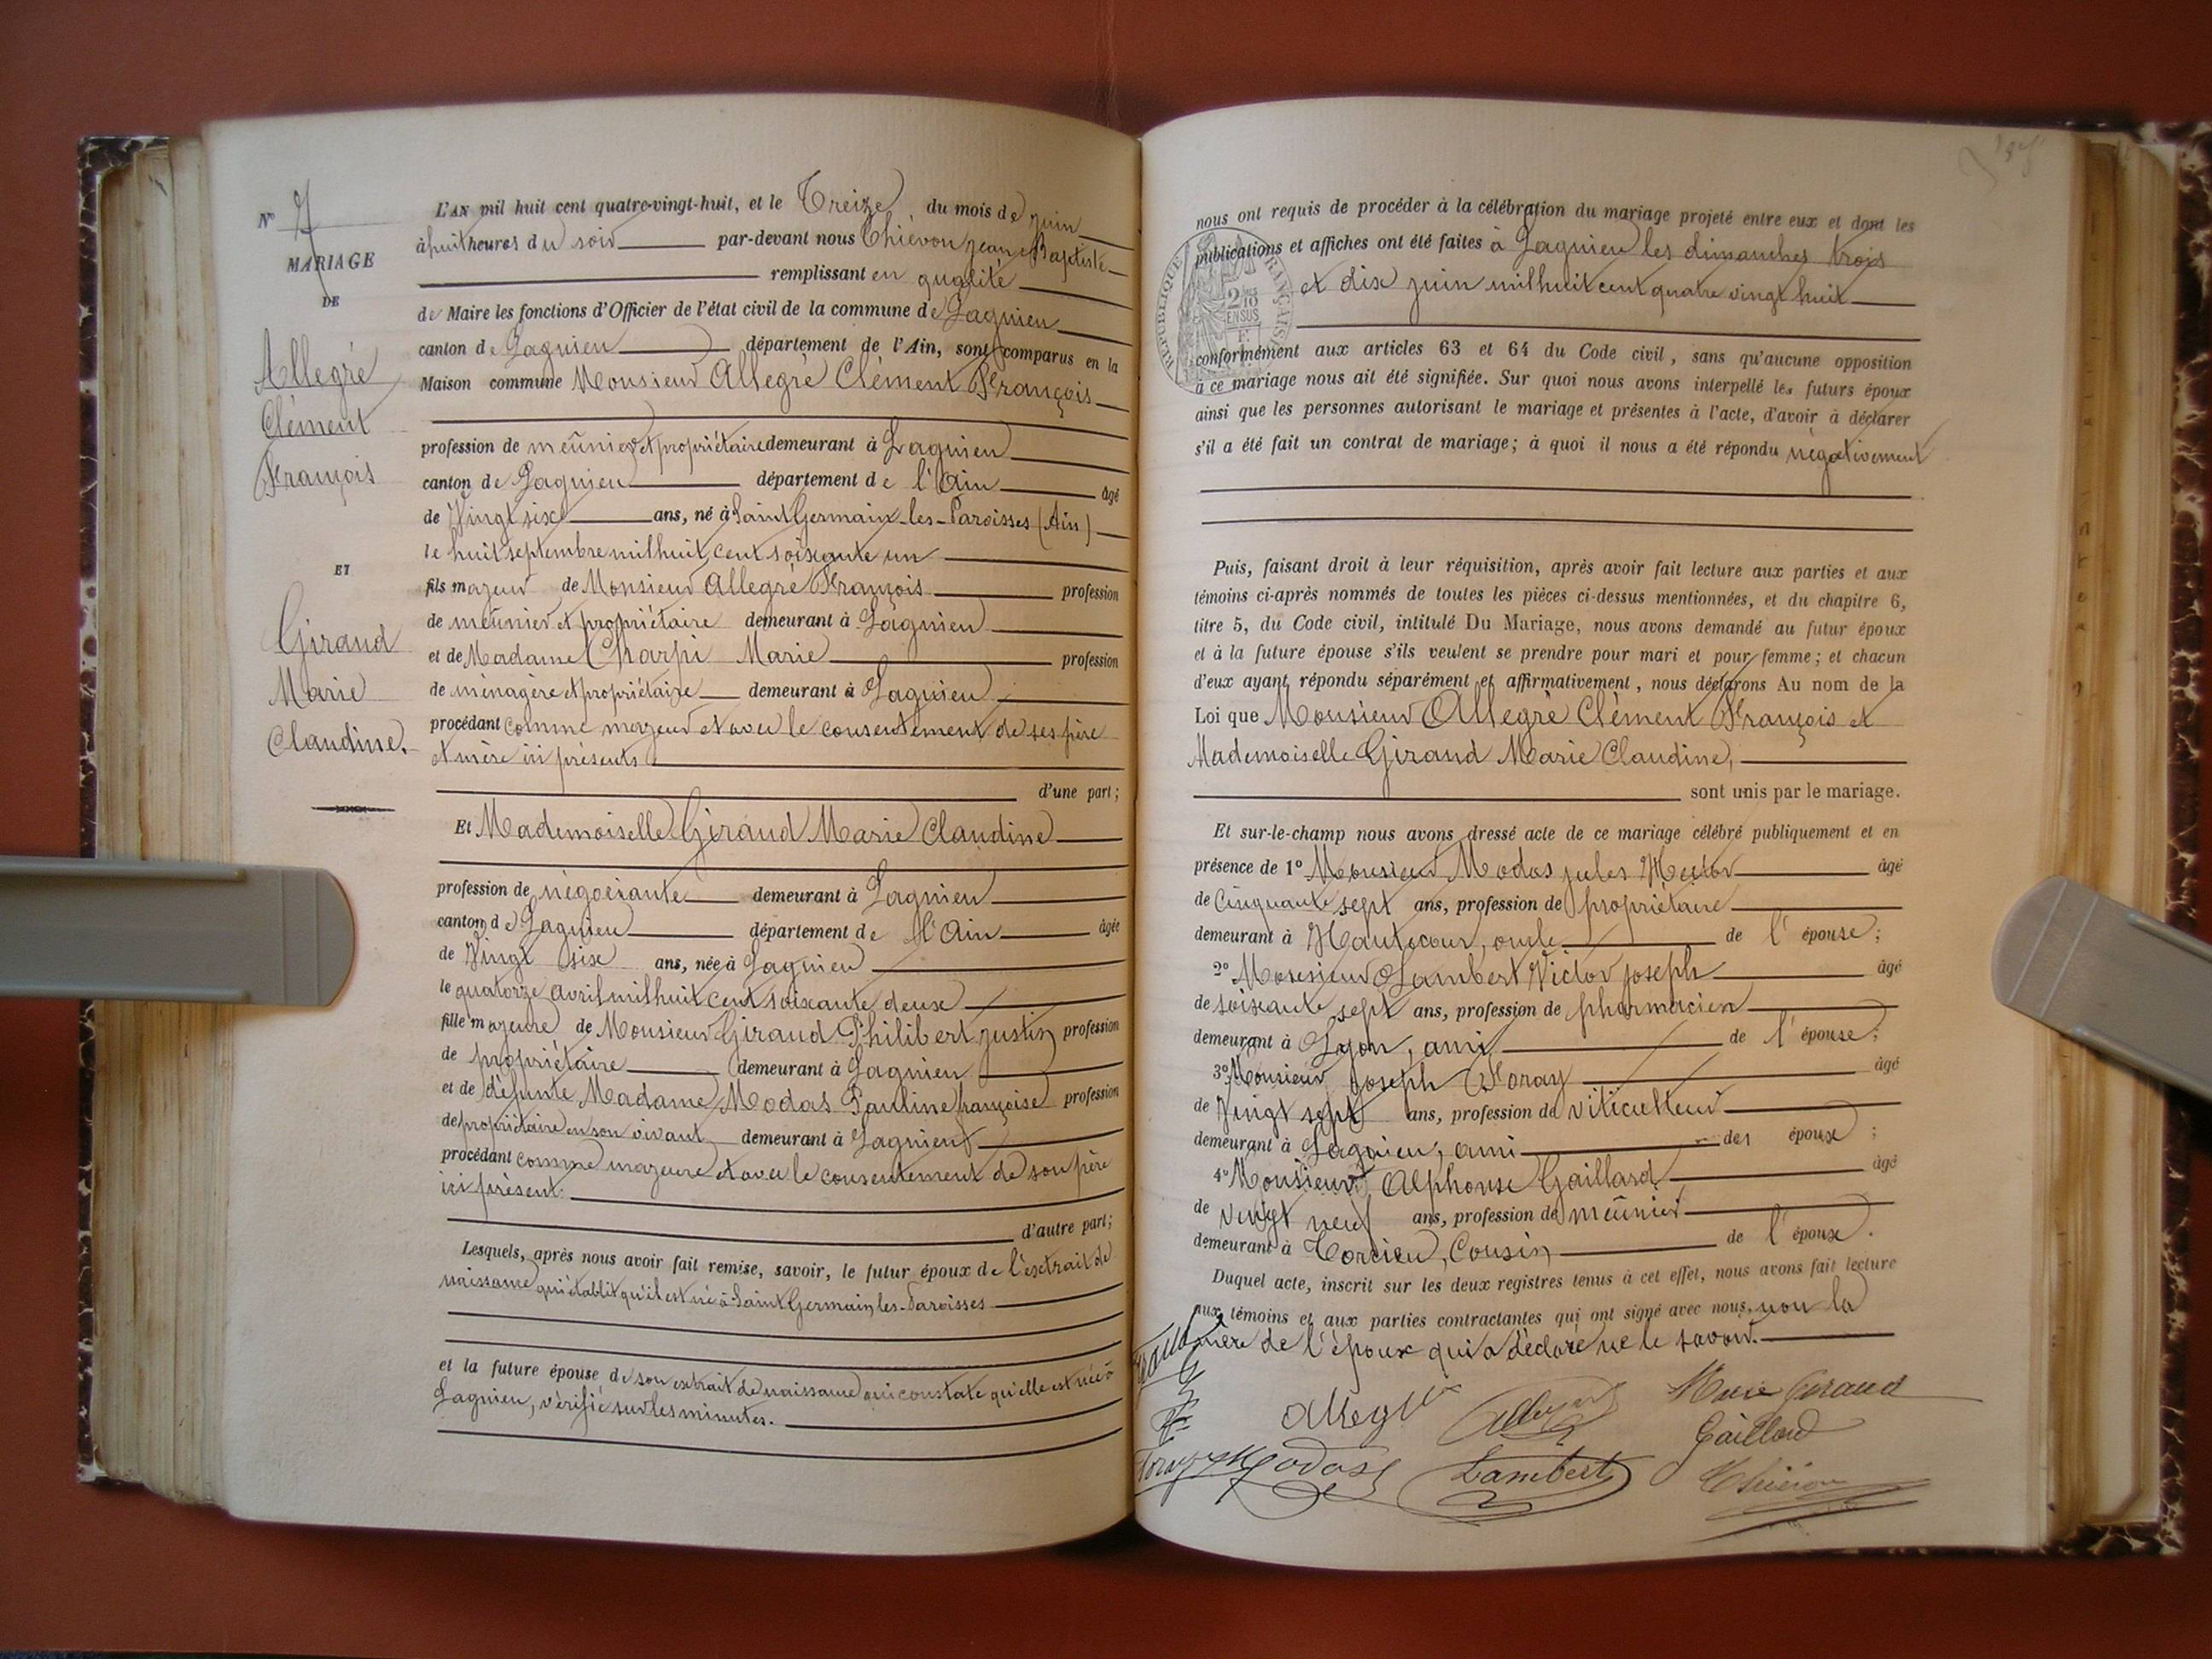 N° 7
MARIAGE
DE
Allegré
Clément
François
ET
Giraud
Marie
Claudine.
L'AN mil huit cent quatre-vingt-huit, et le Treize du mois de juin
à huit heures du soir par-devant nous Thiévon Jean Baptiste
remplissant en qualité
de Maire les fonctions d'Officier de l'état civil de la commune de Lagnieu
canton de Lagnieu département de l'Ain, sont comparus en la
Maison commune Monsieur Allegré Clément François
profession de meûnier et propriétaire demeurant à Lagnieu
canton de Lagnieu département de l'Ain âgé
de Vingt six ans, né à Saint Germain-les-Paroisses (Ain)
le huit septembre mil huit cent soixante un
fils majeur de Monsieur Allegré François profession
de meûnier et propriétaire demeurant à Lagnieu
et de Madame Charpi Marie profession
de ménagère et propriétaire demeurant à Lagnieu
procédant comme majeur et avec le consentement de ses père
et mère ici présents
d'une part;
Et Mademoiselle Giraud Marie Claudine
profession de négociante demeurant à Lagnieu
canton de Lagnieu département de l'Ain âgée
de Vingt six ans, née à Lagnieu
le quatorze avril mil huit cent soixante deux
fille majeure de Monsieur Giraud Philibert Justin profession
de propriétaire demeurant à Lagnieu
et de défunte Madame Modas Pauline françoise profession
de propriétaire en son vivant demeurant à Lagnieu
procédant comme majeure et avec le consentement de son père
ici présent.
d'autre part;
Lesquels, après nous avoir fait remise, savoir, le futur époux de l'extrait de
naissance qui établit qu'il est né à Saint Germain les-Paroisses
et la future épouse de son extrait de naissance qui constate qu'elle est née à
Lagnieu, vérifié sur les minutes.
nous ont requis de procéder à la célébration du mariage projeté entre eux et dont les
publications et affiches ont été faites à Lagnieu les dimanches trois
et dix juin mil huit cent quatre vingt huit
conformément aux articles 63 et 64 du Code civil, sans qu'aucune opposition
à ce mariage nous ait été signifiée. Sur quoi nous avons interpellé les futurs époux
ainsi que les personnes autorisant le mariage et présentes à l'acte, d'avoir à déclarer
s'il a été fait un contrat de mariage; à quoi il nous a été répondu négativement
Puis, faisant droit à leur réquisition, après avoir fait lecture aux parties et aux
témoins ci-après nommés de toutes les pièces ci-dessus mentionnées, et du chapitre 6,
titre 5, du Code civil, intitulé Du Mariage, nous avons demandé au futur époux
et à la future épouse s'ils veulent se prendre pour mari et pour femme; et chacun
d'eux ayant répondu séparément et affirmativement, nous déclarons Au nom de la
Loi que Monsieur Allegré Clément François et
Mademoiselle Giraud Marie Claudine,
sont unis par le mariage.
Et sur-le-champ nous avons dressé acte de ce mariage célébré publiquement et en
présence de 1° Monsieur Modas jules âgé
de Cinquante sept ans, profession de propriétaire
demeurant à Hautecour, oncle de l'épouse;
2° Monsieur Lambert Victor joseph âgé
de soixante sept ans, profession de pharmacien
demeurant à Lyon, ami de l'épouse;
3° Monsieur Joseph Foray âgé
de Vingt sept ans, profession de viticulteur
demeurant à Lagnieu, ami des époux;
4° Monsieur Alphonse Gaillard âgé
de vingt neuf ans, profession de meûnier
demeurant à Torcieu, Cousin de l'époux.
Duquel acte, inscrit sur les deux registres tenus à cet effet, nous avons fait lecture
aux témoins et aux parties contractantes qui ont signé avec nous, non la
mère de l'époux qui a déclaré ne le savoir.
Marie Giraud
Allegré
Gaillard
Foray
Modas
Lambert
Thiévon
RÉPUBLIQUE FRANÇAISE
2/10
EN SUS